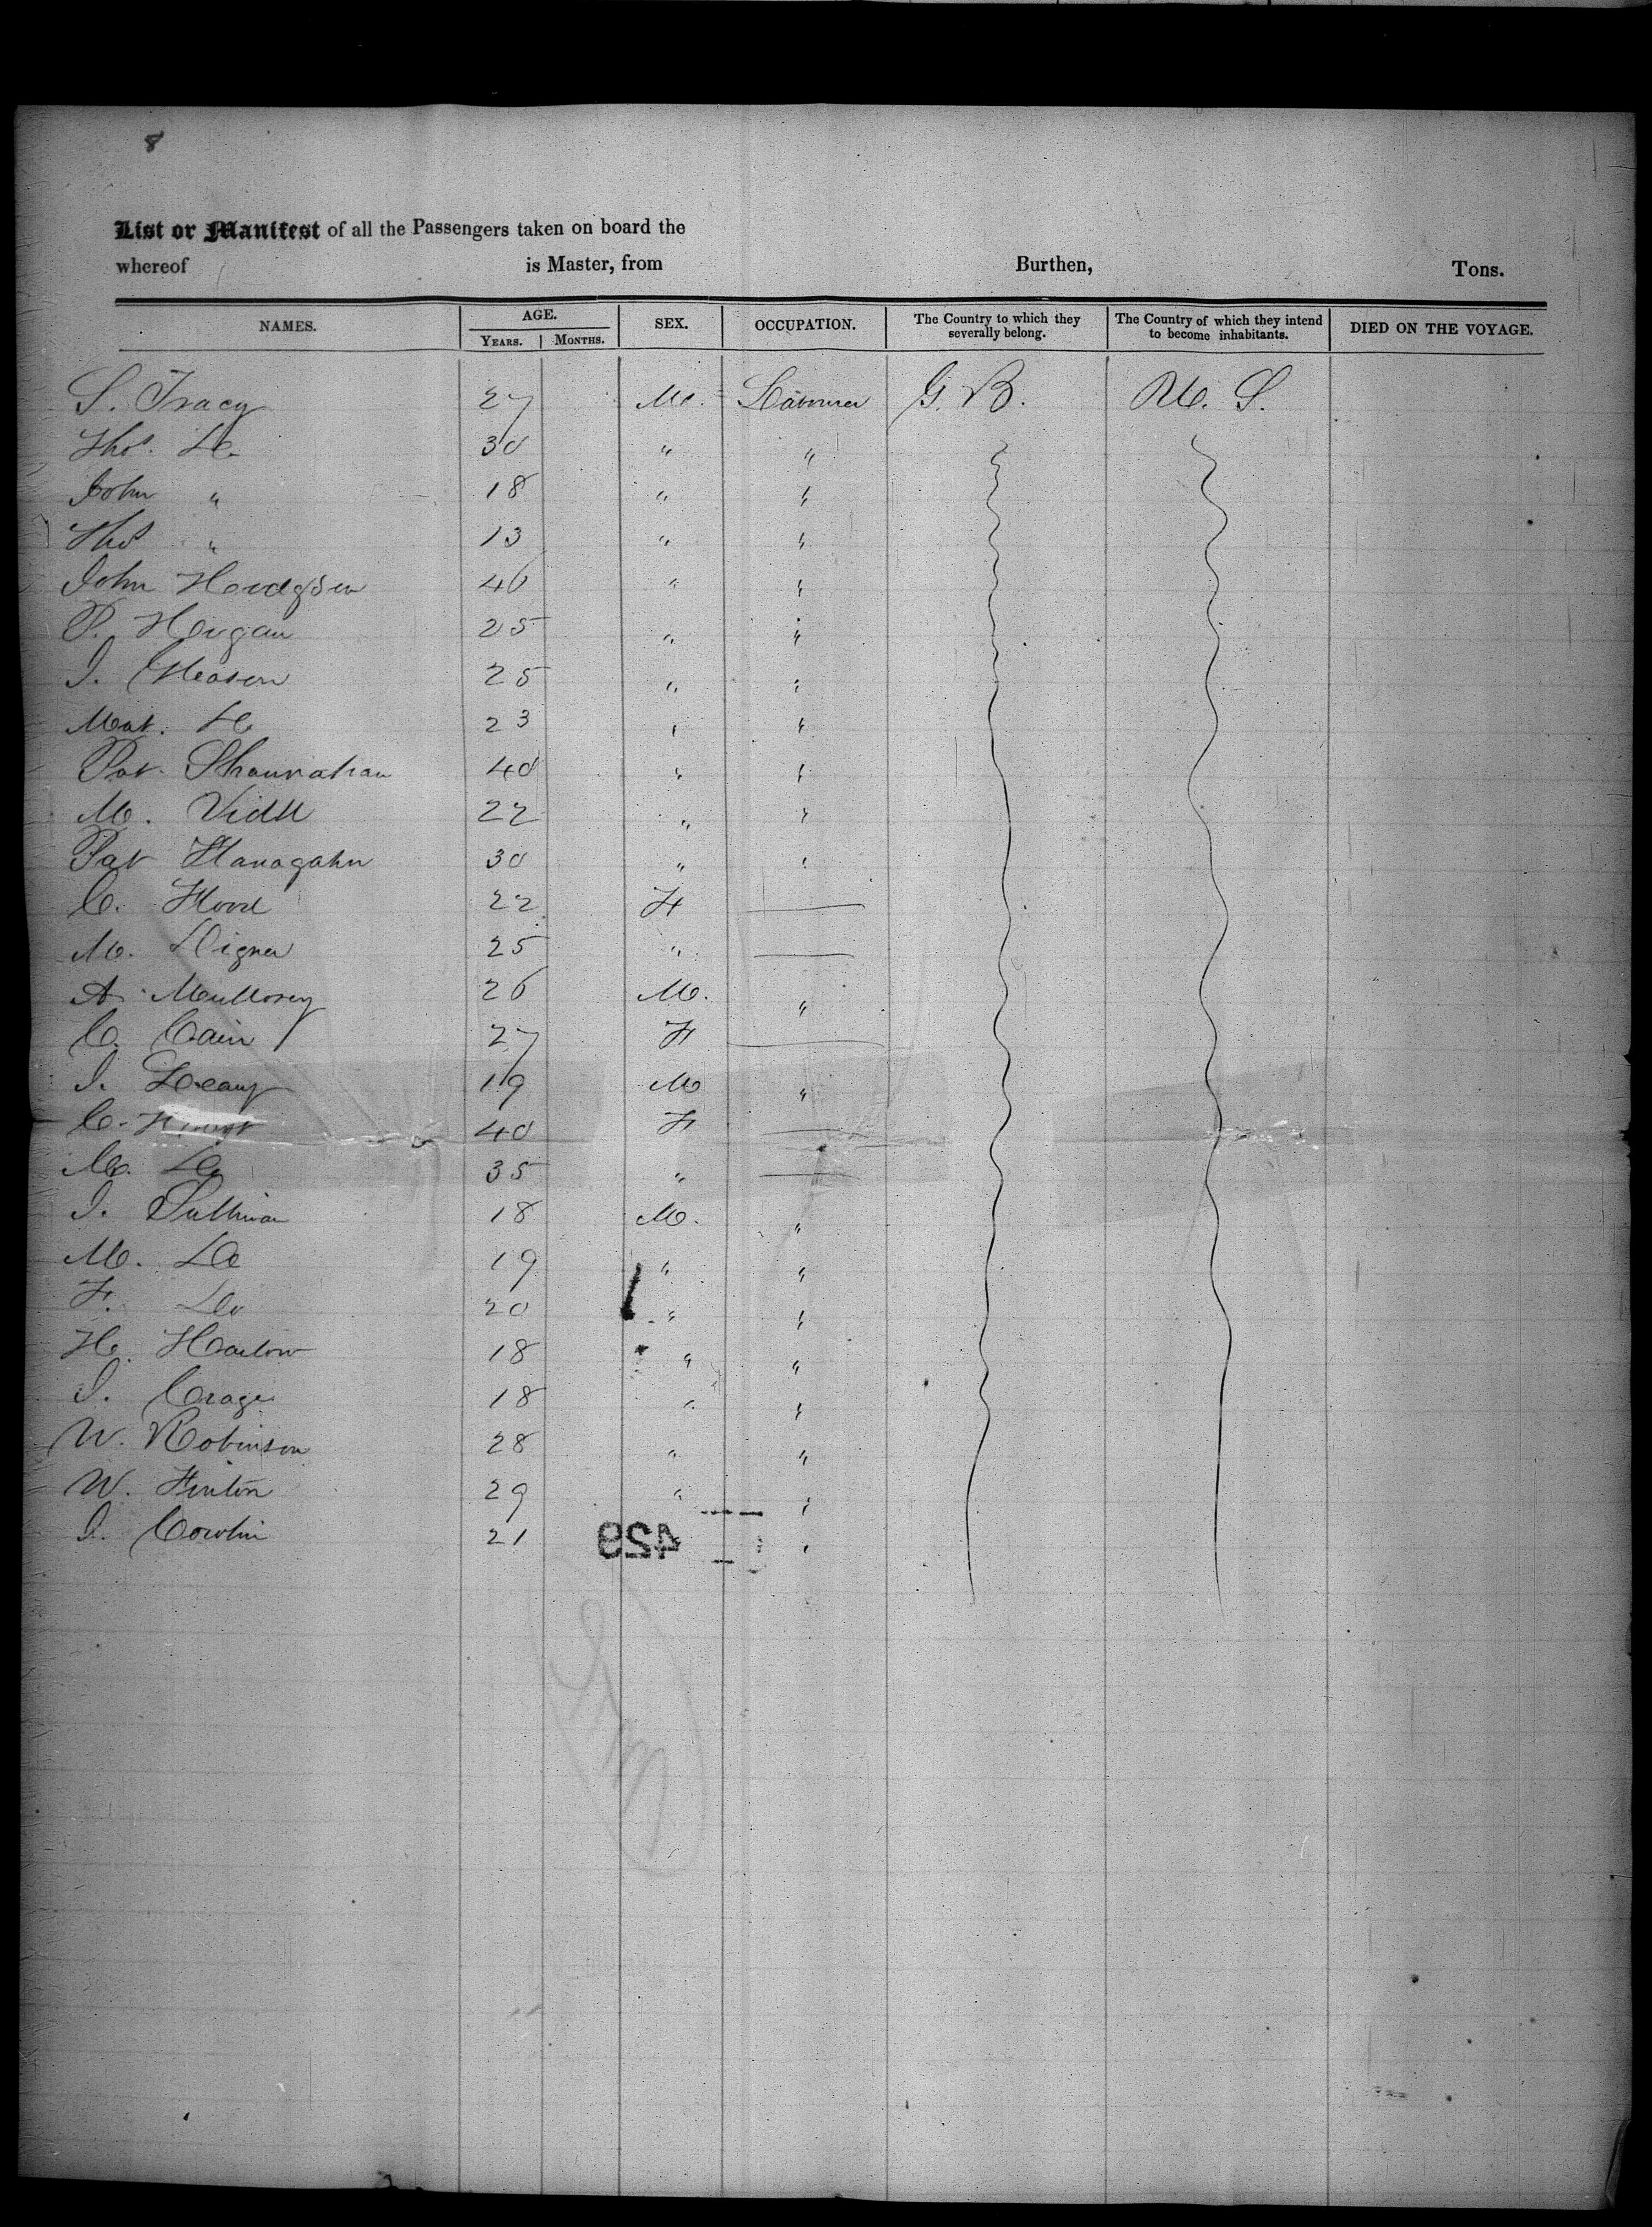 8
List or Manifest of all the Passengers taken on board the
whereof is Master, from Burthen, Tons.
NAMES. AGE. YEARS. MONTHS. SEX. OCCUPATION. The Country to which they severally belong. The Country of which they intend to become inhabitants. DIED ON THE VOYAGE.
S. Tracy 27 M. Labourer G. B. U. S.
Thos. Do 30 " "
John " 18 " "
Thos " 13 " "
John Hodgson 46 " "
P. Horgan 25 " "
J. Gleason 25 " "
Mat. Do 23 " "
Pat. Shaunahan 40 " "
M. 22 " "
Pat Flanagahn 30 " "
C. Flood 22 F —
M. Digner 25 " —
A. Mullorey 26 M. "
C. Cain 27 F —
J. Deany 19 M "
C. 40 F —
M. Do 35 " —
J. Sullivan 18 M. "
M. Do 19 " "
F. Do 20 " "
H. Harlow 18 " "
J. Crage 18 " "
W. Robinson 28 " "
W. Finton 29 " "
J. Cowlin 21 "
429